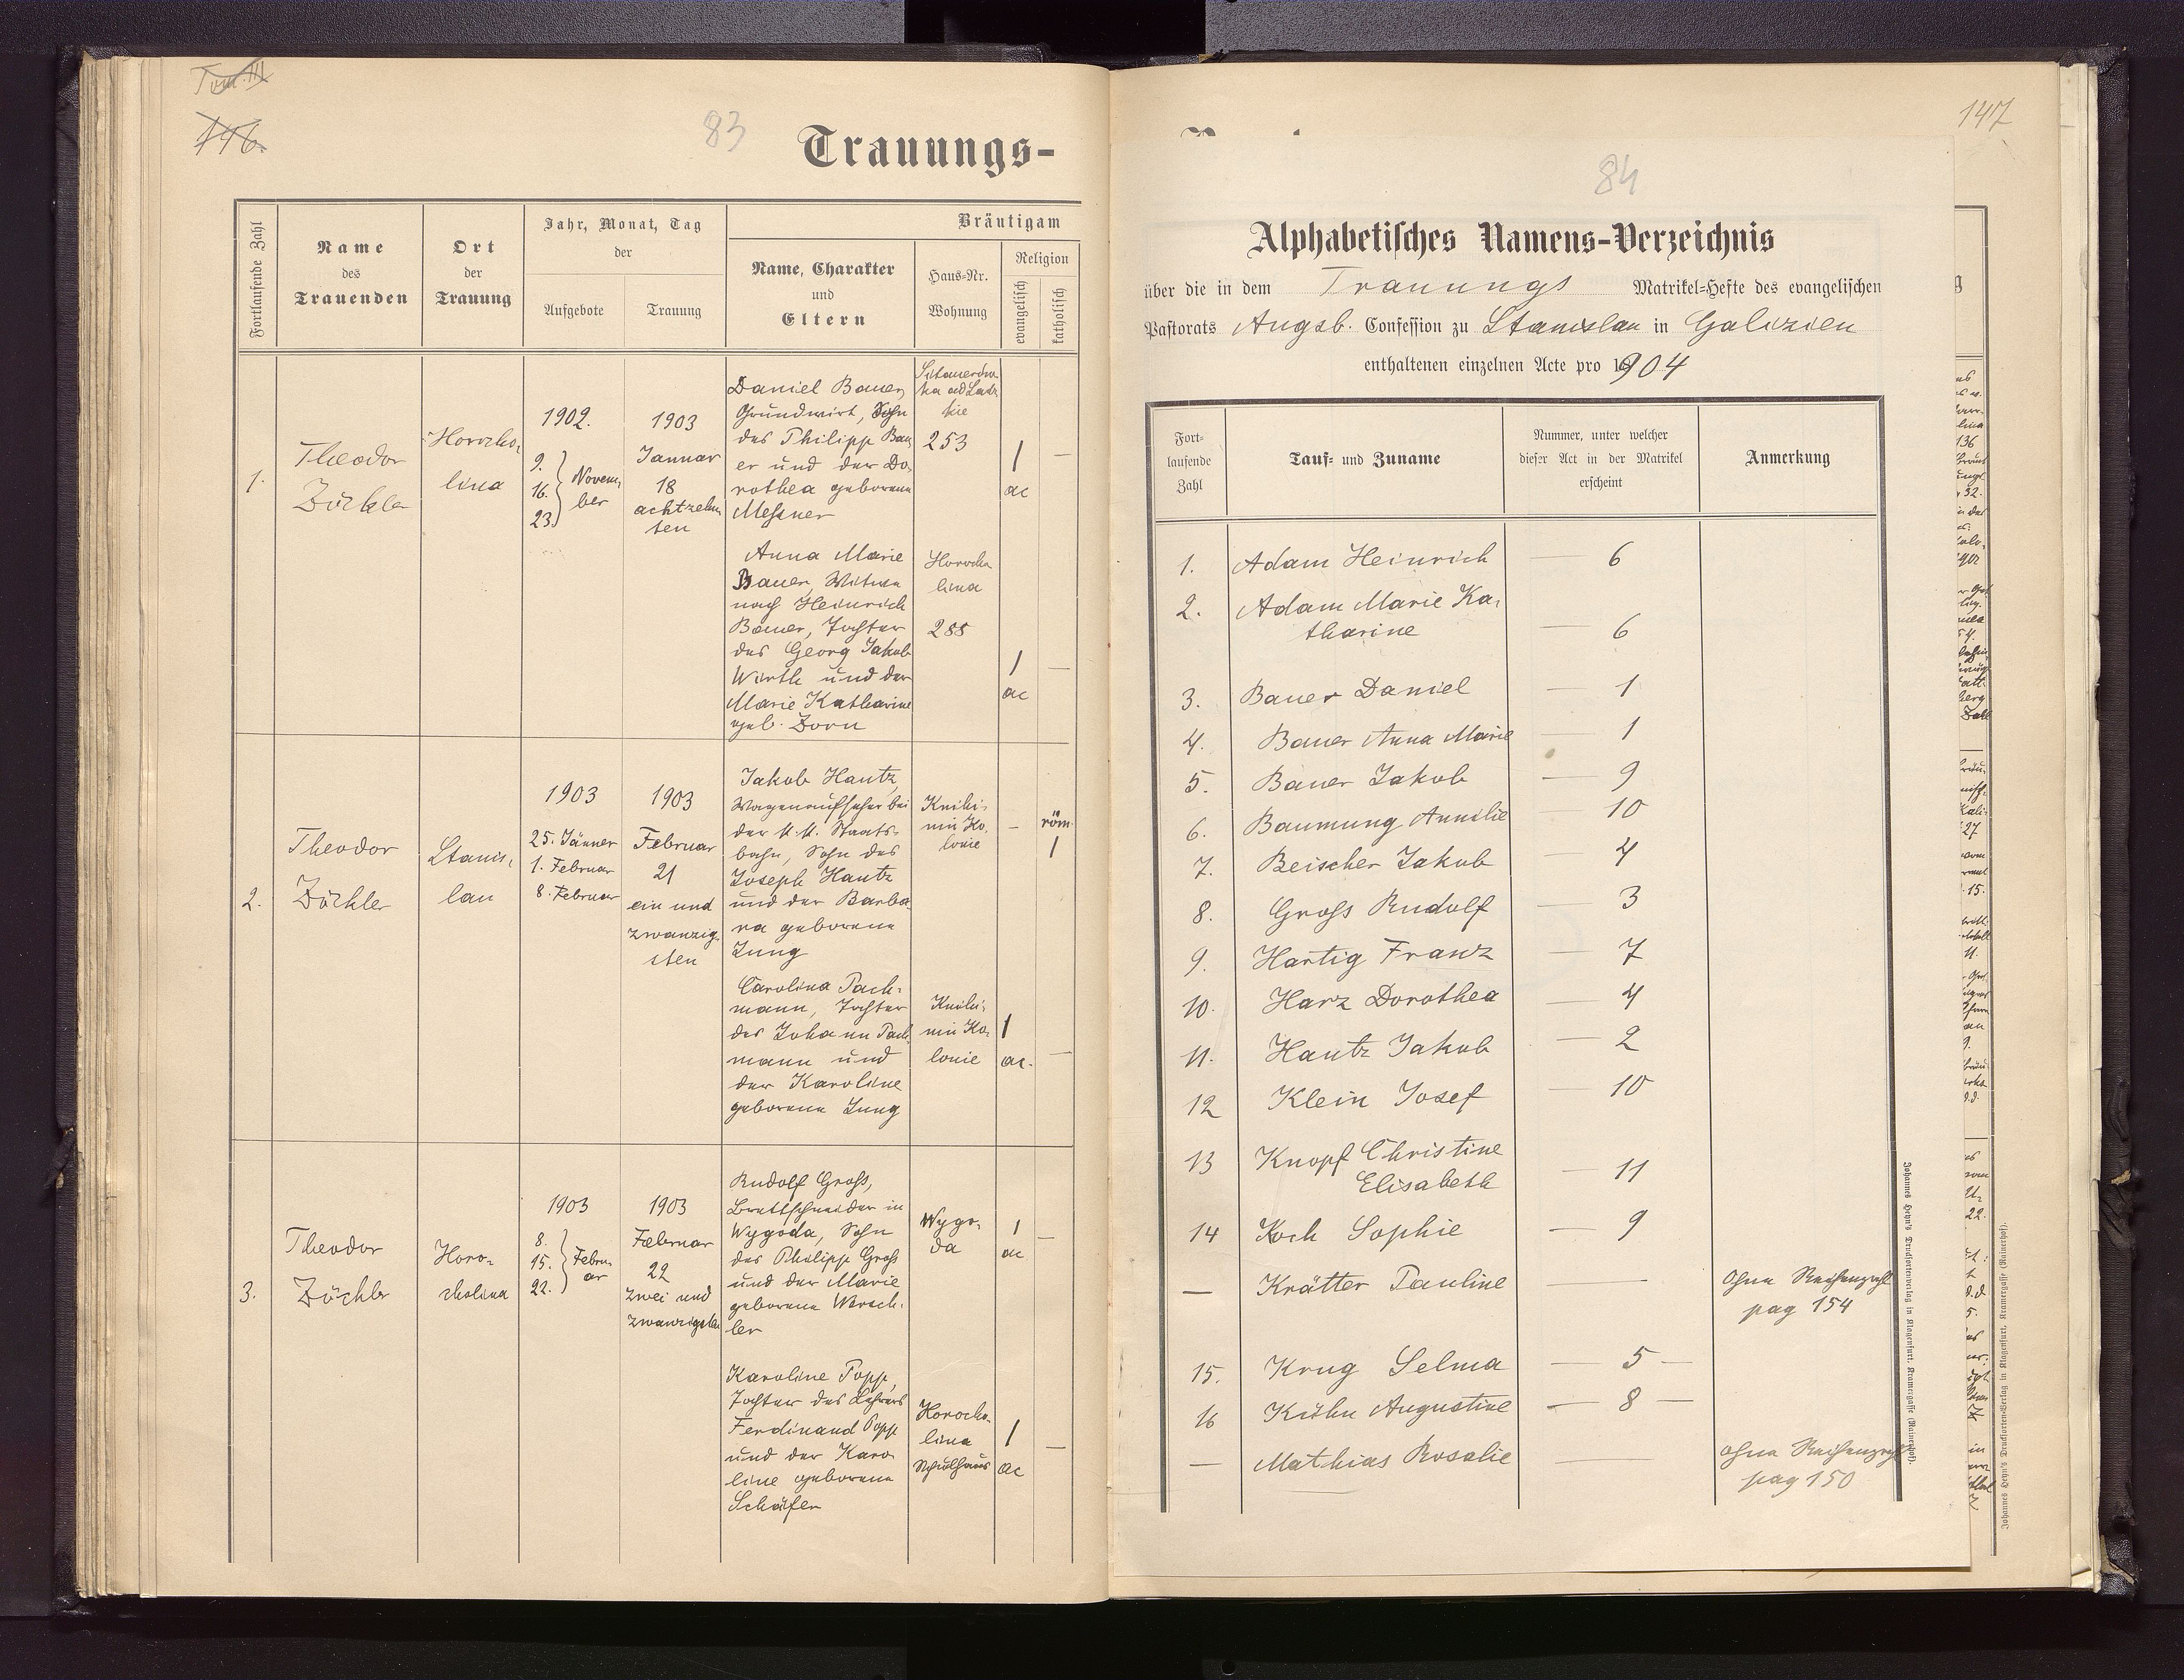 Tom. III
146.
83
Trauungs-
Fortlaufende Zahl
Name
des
Trauenden
Ort
der
Trauung
Jahr, Monat, Tag
der
Aufgebote
Trauung
Bräutigam
Name, Charakter
und
Eltern
Haus-Nr.
Wohnung
Religion
evangelisch
katholisch
1.
Theodor
Zöckler
Horocho-
lina
1902.
9.
16. Novem-
ber
23.
1903
Januar
18
achtzehn
ten
Daniel Bauer,
Grundwirt, Sohn
des Philipp Bau
er und der Do-
rothea geborene
Messner
253
1
ac
—
Anna Marie
Bauer, Witwe
nach Heinrich
Bauer, Tochter
des Georg Jakob
Wirth und der
Marie Katharine
geb. Zorn
Horocho
lina
288
1
ac
—
2.
Theodor
Zöckler
Stanis-
lau
1903
25. Jänner
1. Februar
8. Februar
1903
Februar
21
ein und
zwanzig-
sten
Jakob Hautz,
Wagenaufseher bei
der k.k. Staats-
bahn, Sohn des
Joseph Hautz
und der Barba-
ra geborene
Jung
Knihi-
nin Ko-
lonie
—
röm.
1
Carolina Pach-
mann, Tochter
des Johann Pach
mann und
der Karoline
geborene Jung
Knihi-
nin Ko-
lonie
1
ac.
—
3.
Theodor
Zöckler
Horo-
cholina
1903
8.
15. Febru-
ar
22.
1903
Februar
22
zwei und
zwanzigsten
Rudolf Gross,
Brettschneider in
Wygoda, Sohn
des Philipp Gross
und der Marie
geborene Wersch-
ler
Wygo-
da
1
ac
—
Karoline Popp,
Tochter des Lehrers
Ferdinand Popp
und der Karo
line geborene
Schäfer
Horocho-
lina
Schulhaus
1
ac
—
147
84
Alphabetisches Namens-Verzeichnis
über die in dem Trauungs Matrikel-Hefte des evangelischen
Pastorats Augsb. Confession zu Stanislau in Galizien
enthaltenen einzelnen Acte pro 1904
Fort-
laufende
Zahl
Tauf- und Zuname
Nummer, unter welcher
dieser Act in der Matrikel
erscheint
Anmerkung
1. Adam Heinrich — 6
2. Adam Marie Ka-
tharine — 6
3. Bauer Daniel — 1
4. Bauer Anna Marie — 1
5. Bauer Jakob — 9
6. Baumung Amilie 10
7. Beischer Jakob — 4
8. Gross Rudolf — 3
9. Hartig Franz — 7
10. Harz Dorothea — 4
11. Hautz Jakob — 2
12 Klein Josef — 10
13 Knopf Christine
Elisabeth — 11
14 Koch Sophie — 9
— Krätter Pauline — Ohne Reihenzahl
pag 154
15. Krug Selma — 5 —
16 Kühn Augustine — 8 —
— Mathias Rosalie — Ohne Reihenzahl
pag 150
Johannes Heyn's Drucksortenverlag in Klagenfurt, Kramergasse (Rainerhof).
Johannes Heyn's Drucksorten-Verlag in Klagenfurt, Kramergasse (Rainerhof).